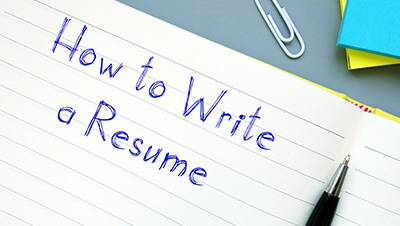 How to Write
a Resume